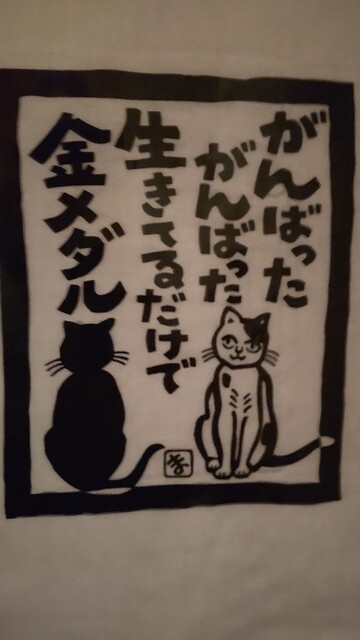 がんばった
がんばった
生きてるだけで
金メダル